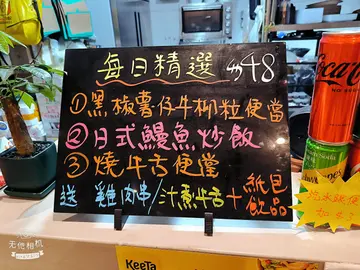 每日精選 $48
①黑椒薯仔牛柳粒便當
②日式鰻魚炒飯
③燒牛舌便當
送 雞肉串/汁煮牛舌+紙包飲品
Coca
無他相机
KeeTa